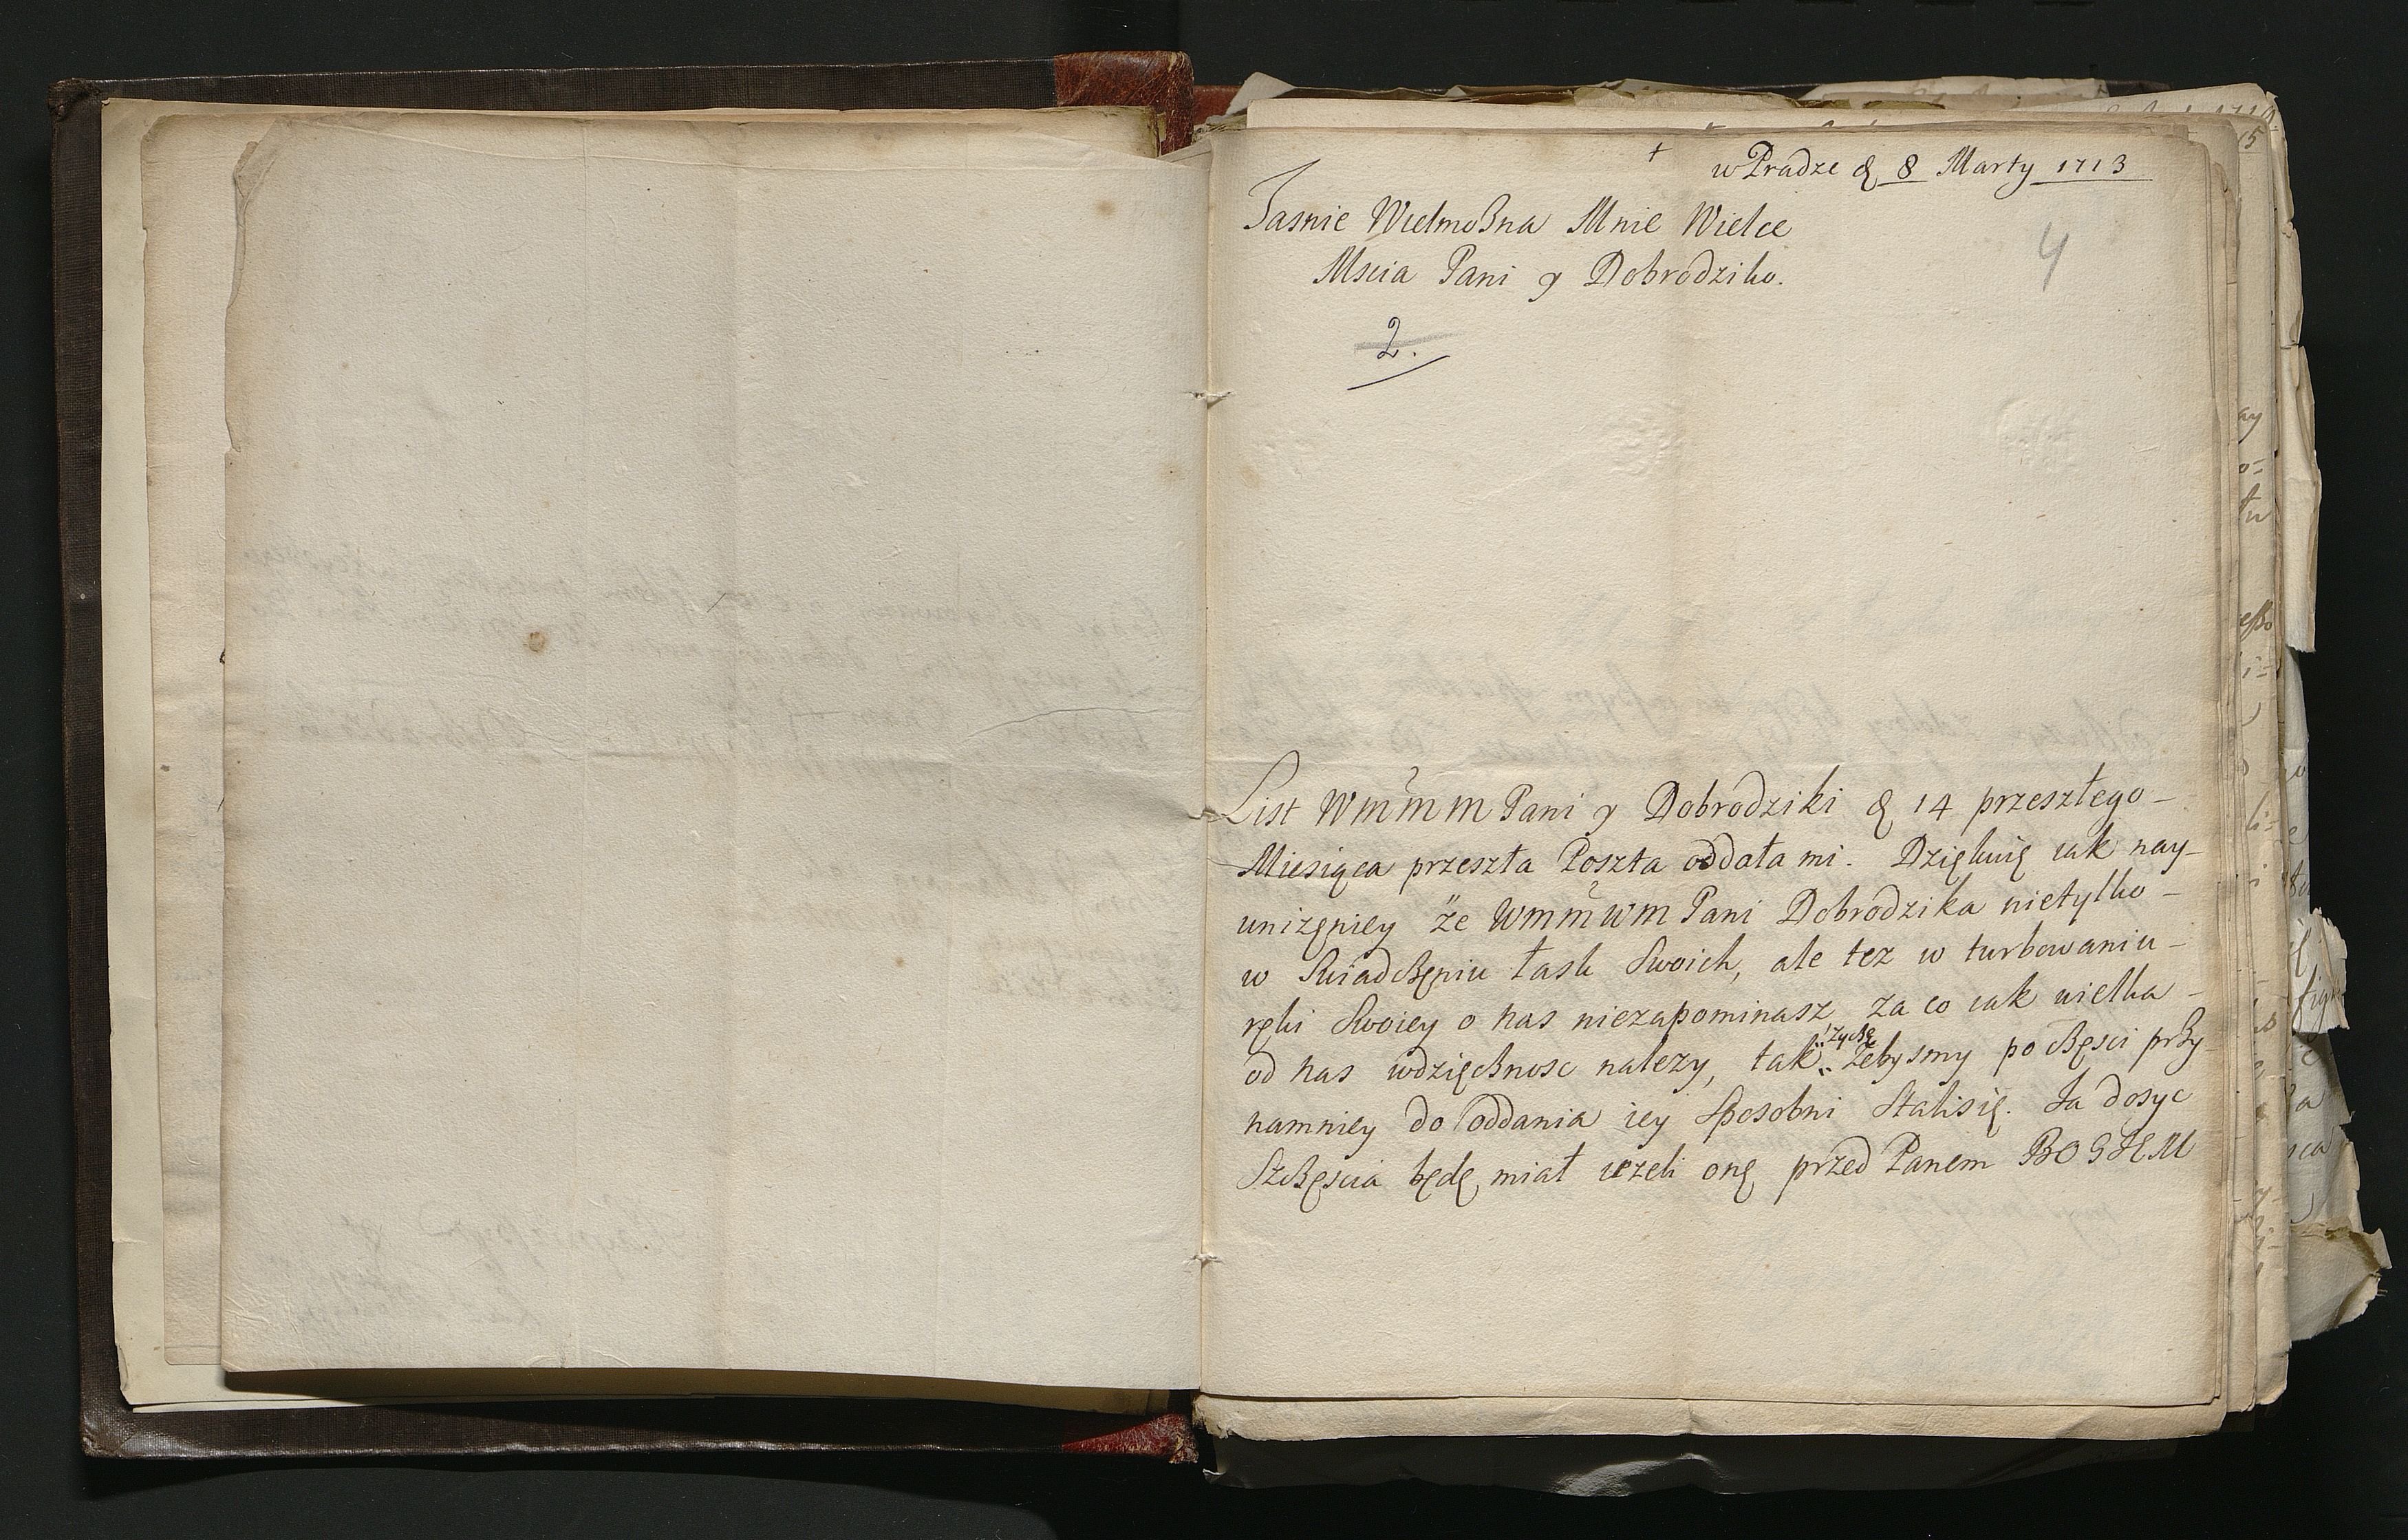 †
w Pradze d 8 Marty 1713
Jasnie Wielmoßna Mnie Wielce
4
Mscia Pani y Dobrodziko.
2.
List Wmmm Pani y Dobrodziki d 14 przeszłego-
Miesiąca przeszła Poszta oddała mi. Dziękuię iak nay-
uniżęniey że WmmWm Pani Dobrodzika nietylko-
w Swiadcßęniu łask Swoich, ale tez w turbowaniu-
ręki Swoiey o nas niezapominasz za co iak wielka-
życßę
od nas wdzięcßnosc nalezy, tak żebysmy po cßęsci prßy
namniey do oddania iey Sposobni Stalisię. Ja dosyc
Szcßęscia będę miał ieżeli onę przed Panem BOGIEM